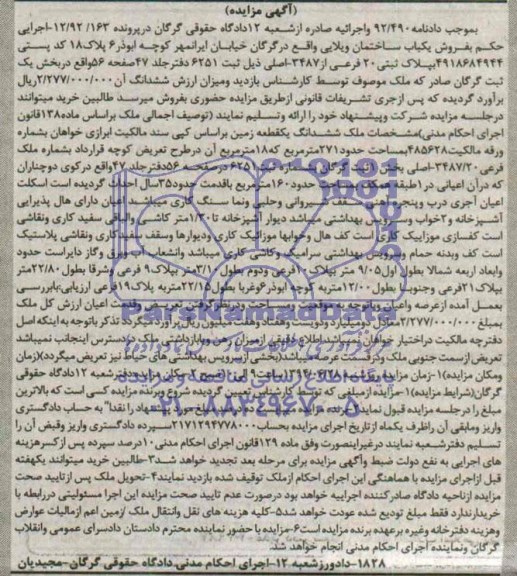 (آگهی مزایده)
بموجب دادنامه ۹۲/۴۹۰ واجرائیه صادره ازشعبه ۱۲دادگاه حقوقی گرگان درپرونده ۱۲/۹۲/۱۶۳-اجرایی
حکم بفروش یکباب ساختمان ویلایی واقع درگرگان خیابان ایرانمهر کوچـه ابوذر۶ پلاک۱۸ کد پستی
۴۹۱۸۶۸۴۹۴۴بپلاک ثبتی۲۰ فرعی از۳۴۸۷-اصلی ذیل ثبت ۶۲۵۱ دفترجلد ۴۷صفحه ۵۶واقع دربخش یک
ثبت گرگان صادر که ملک موصوف توسط کارشناس بازدید ومیزان ارزش ششدانگ آن۲/۲۷۷/۰۰۰/۰۰۰ریال
برآورد گردیده که پس ازجری تشریفات قانونی ازطریق مزایده حضوری بفروش میرسد طالبین خرید میتوانند
درجلسه مزایده شرکت وپیشنهاد خود را ارائه وتسلیم نمایند (توصیف اجمالی ملک براساس ماده۱۳۸قانون
اجرای احکام مدنی)مشخصات ملک ششدانگ یکقطعه زمین براساس کپی سند مالکیت ابرازی خواهان بشماره
ورقه مالکیت۴۸۵۶۲۸بمساحت حدود۲۷۱مترمربع که۱۸مترمربع آن درطرح تعریض کوچه قرارداد بشماره ملک
فرعی۳۴۸۷/۲۰-اصلی بخش ۱ثبت گرگان بشماره ثبت ۶۲۵۱ درصفحه ۵۶دفترجلد ۴۷واقع درکوی دوچناران
که درآن اعیانی در۱طبقه مسکونی بمساحت حدود۱۶۰مترمربع باقدمت حدود۳۵سال احداث گردیده است اسکلت
اعیان آجری درب وپنجره آهنی سقف شیروانی وحلبی ونما سنگ کاری میباشد اعیان دارای هال پذیرایی
آشپزخانه و۲خواب وسرویس بهداشتی میباشد دیوار آشپزخانه تا۱/۳۰متر کاشی والباقی سفید کاری ونقاشی
است کفسازی موزاییک کاری است کف هال وخوابها موزائیک کاری ودیوارها وسقف سفیدکاری ونقاشی پلاستیک
است کف وبدنه حمام وسرویس بهداشتی سرامیک وکاشی کاری میباشد وانشعاب آب وبرق وگاز دایراست حدود
وابعاد اربعه شمالا بطول اول۹/۰۵ متر بپلاک فرعی ودوم بطول۳/۱۰متر بپلاک۹ فرعی وشرقا بطول۲۲/۸۰متر
بپلاک۲۱فرعی وجنوبا بطول۱۲/۰۰متربه کوچه ابوذر۶وغربا بطول۲۲/۱۵متربه پلاک۱۹فرعی ارزیابی:بابررسی
بعمل آمده ازعرصه واعیان وباتوجه به موقعیت ومساحت ودرنظرگرفتن تعریض وقدمت اعیان ارزش کل ملک
بمبلغ ۲/۲۷۷/۰۰۰/۰۰۰معادل دومیلیارد ودویست وهفتاد وهفت میلیون ریال برآورد میگردد تذکر باتوجه به اینکه اصل
دفترچه مالکیت دراختیار خواهان نمیباشد اطلاع دقیقی ازمیزان رهن وبازداشتی ملک دردسترس اینجانب نمیباشد
تعریض ازسمت جنوبی ملک ودرقسمت عرصه میباشد(بخشی ازسرویس بهداشتی های حیاط نیز تعریض میگردد)(زمان
ومکان مزایده)۱-زمان مزایده
گرگان(شرایط مزایده)۱-مزایده ازمبلغی که توسط کارشناس تعیین گردیده شروع وبرنده مزایده کسی است که بالاترین
مبلغ را درجلسه مزایده قبول نماید
واریز ومابقی آن راظرف یکماه ازتاریخ اجرای مزایده بحساب۲۱۷۱۲۹۴۷۷۸۰۰۰سپرده دادگستری واریز وقبض آن را
تسلیم دفترشعبه نمایند درغیراینصورت وفق ماده ۱۲۹قانون اجرای احکام مدنی۱۰درصد سپرده پس از کسرهزینه
های اجرایی به نفع دولت ضبط وآگهی مزایده برای مرحله بعد تجدید خواهد شد۳-طالبین خرید میتوانند یکهفته
قبل ازاجرای مزایده با هماهنگی این اجرای احکام ازملک توقیف شده بازدید نمایند۴-تحویل ملک پس ازتایید صحت
مزایده ازناحیه دادگاه صادرکننده اجراییه خواهد بود درصورت عدم تایید صحت مزایده این اجرا مسئولیتی دررابطه با
خریدارندارد فقط مبلغ تودیع شده عودت خواهد شد۵-کلیه هزینه های نقل وانتقال ملک ازمین اعم ازمالیات عوارض
وهزینه دفترخانه وغیره برعهده برنده مزایده است۶-مزایده با حضور نماینده محترم دادستان دادسرای عمومی وانقلاب
گرگان ونماینده اجرای احکام مدنی انجام خواهد شد.
۱۸۲۸-دادورزشعبه ۱۲-اجرای احکام مدنی.دادگاه حقوقی گرگان-مجیدیان
ParsNamadData
پایگاه اطلاع رسانی مناقصه و مزایده
۰۲۱-۸۸۳۴۹۶۷۰-۵